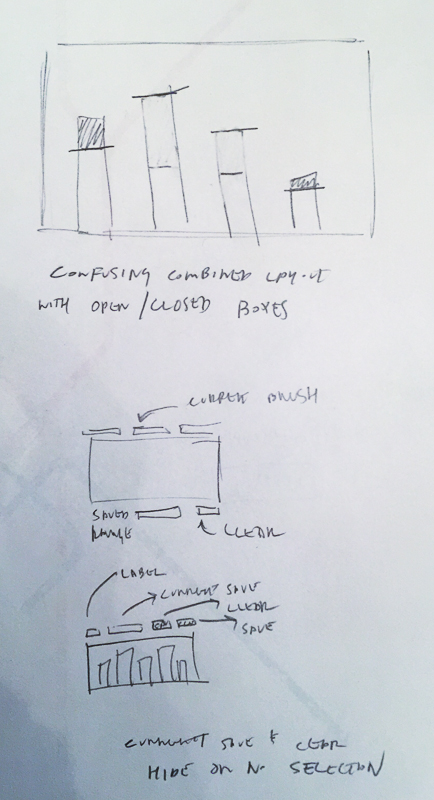 CONFUSING COMBINED LAY-OUT
WITH OPEN/CLOSED BOXES
CURRENT BRUSH
SAVED
RANGE
CLEAR
LABEL
CURRENT SAVE
CLEAR
SAVE
CURRENT SAVE & CLEAR
HIDE ON NO SELECTION